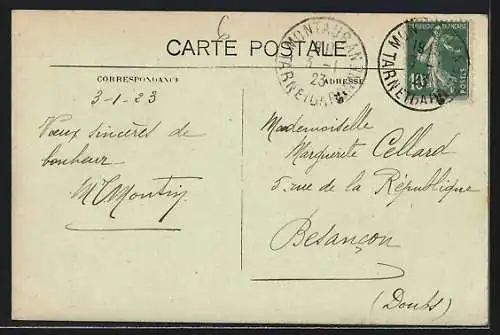 6
CARTE POSTALE
CORRESPONDANCE
ADRESSE
MONTAUBAN
TARN-ET-GARONNE
3 - 1
23
MONTAUBAN
TARN-ET-GARONNE
POSTES
3-1-23
Vœux sincères de
bonheur
Mademoiselle
Marguerite Cellard
5, rue de la République
Besançon
(Doubs)